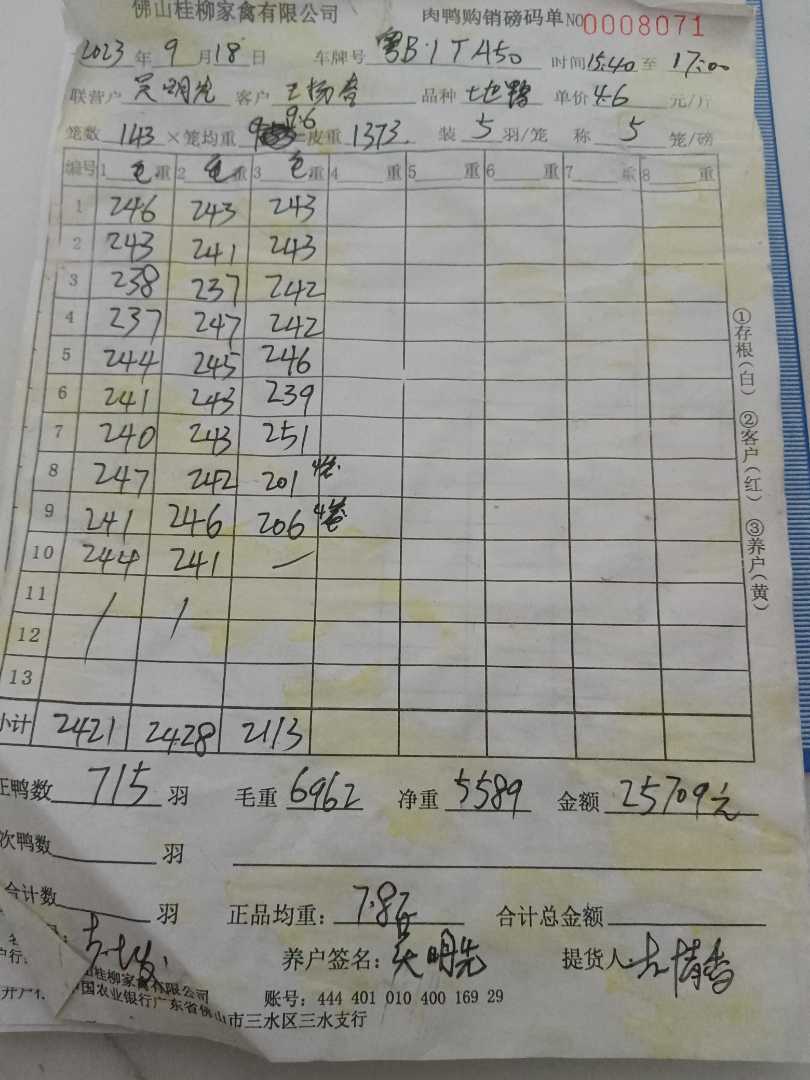 佛山桂柳家禽有限公司 肉鸭购销磅码单 NO 0008071
2023 年 9 月 18 日 车牌号 粤B·1TA50 时间 15:40 至 17:00
联营户 吴明先 客户 品种 单价 4.6 元/斤
笼数 143 ×笼均重 9.6 =皮重 1373. 装 5 羽/笼 称 5 笼/磅
编号 1 毛 重 2 毛 重 3 毛 重 4 重 5 重 6 重 7 重 8 重
1 246 243 243
2 243 241 243
3 238 237 242
4 237 247 242
5 244 245 246
6 241 243 239
7 240 243 251
8 247 242 201 4笼
9 241 246 206 4笼
10 244 241 —
11 / /
12
13
小计 2421 2428 2113
正鸭数 715 羽 毛重 6962 净重 5589 金额 25709元
次鸭数 羽
合计数 羽 正品均重: 7.8斤 合计总金额
养户签名: 吴明先 提货人
山桂柳家禽有限公司 账号: 444 401 010 400 169 29
开户行 中国农业银行广东省佛山市三水区三水支行
①存根(白) ②客户(红) ③养户(黄)